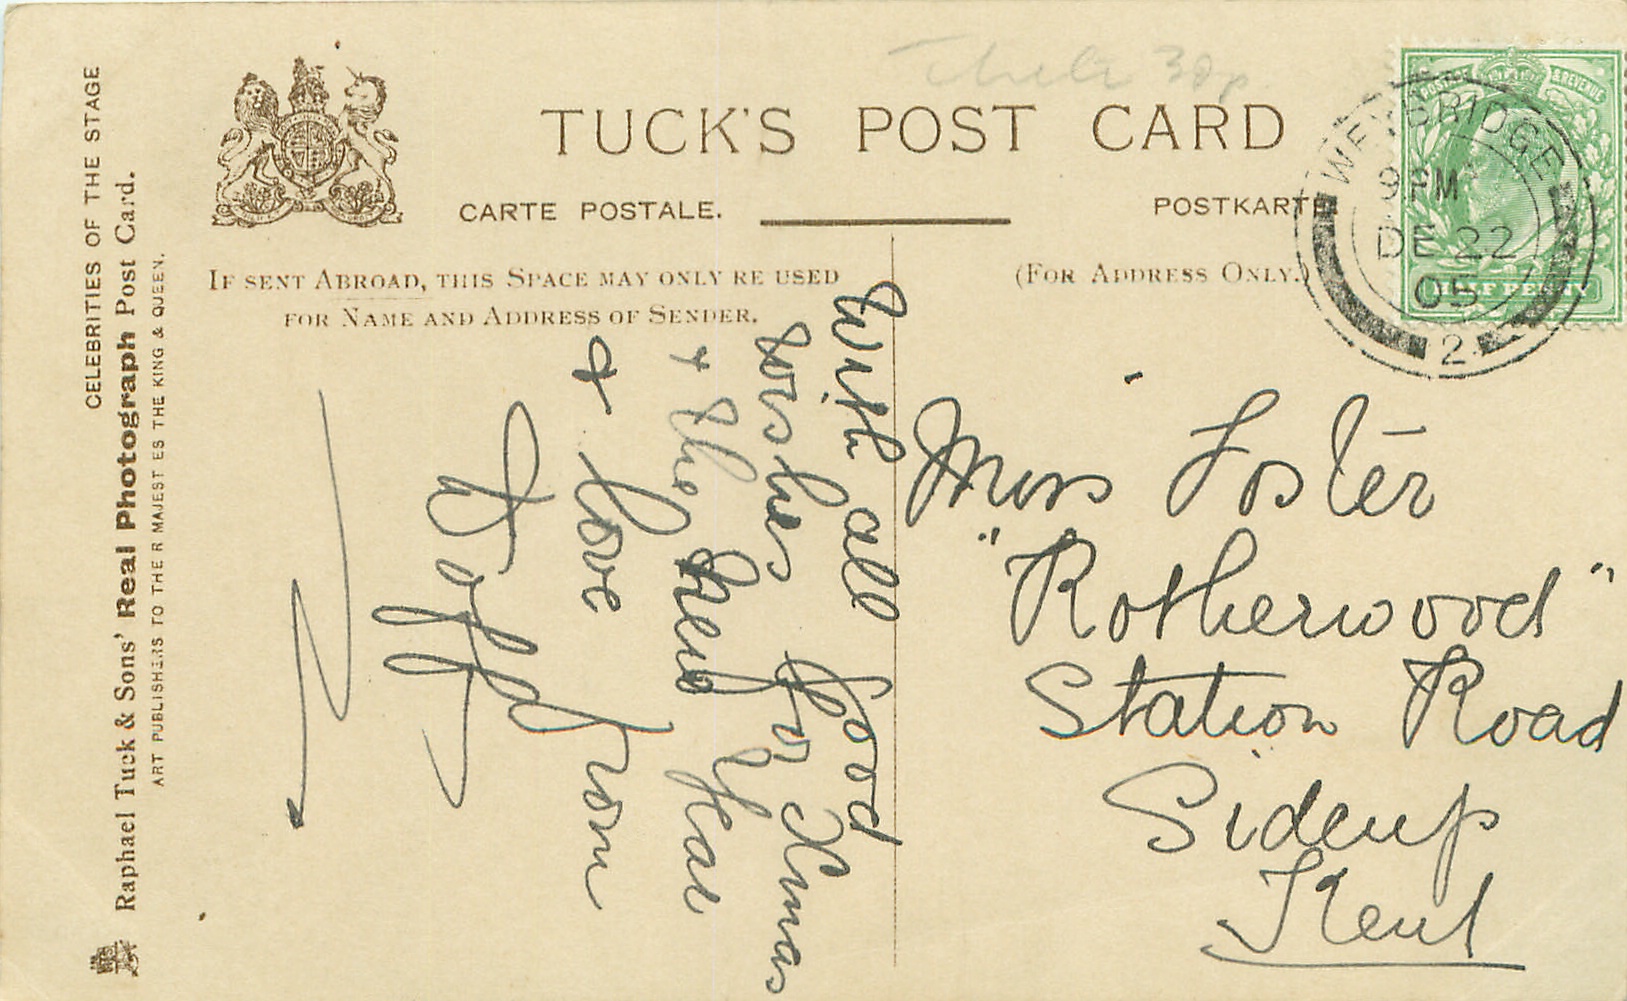 TUCK'S POST CARD
CARTE POSTALE.
POSTKARTE
IF SENT ABROAD, THIS SPACE MAY ONLY BE USED
FOR NAME AND ADDRESS OF SENDER.
(FOR ADDRESS ONLY.)
CELEBRITIES OF THE STAGE
Raphael Tuck & Sons' Real Photograph Post Card.
ART PUBLISHERS TO THEIR MAJESTIES THE KING & QUEEN.
POSTAGE & REVENUE
HALF PENNY
WEYBRIDGE
9 PM
DE 22
05
2
With all good
wishes for Xmas
+ the New Year
+ love from
Miss Foster
"Rotherwood"
Station Road
Sidcup
Kent